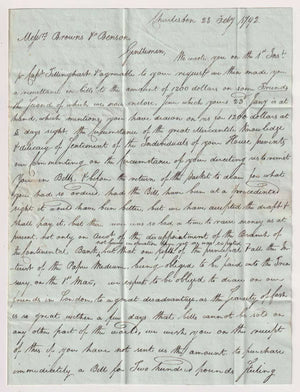 Charleston 28 Feby 1792
Messrs. Browns & Benson
Gentlemen,
We wrote you on the 1st Inst.
Capt. Tillinghast & agreeable to your request we then made you
a remittance in bills to the amount of 1200 dollars on some Friends
the friend of which we now inclose. Since which yours 23d Jany is at
hand, which mentions your have drawn on us for 1200 dollars at
days sight, the circumstance of the great Mercantile Knowledge
& delicacy of sentiment of the Individuals of your House prevents
our commenting on the Circumstance of your directing us to remit
you in Bills & before the return of the packet to draw for what
you had so ordered had the Bill been at a
sight it would have been better, but we have accepted the draft &
shall pay it, but there never was so bad a time to raise money as at
present not only on Acct. of the disappointment of the Branch of
the Continental Bank, but that one fifth of the principal & all the In-
terest of the Paper Medium, being obliged to be paid into the Trea-
sury on the 1st Mar, we expect to be obliged to draw on our
friends in London, to a great disadvantage as the scarcity of Cash
is so great within a few days that bills cannot be sold on
any other part of the world, we wish you on the receipt
of this if you have not sent us the amount to purchase
immediately a Bill for Two hundred pounds sterling